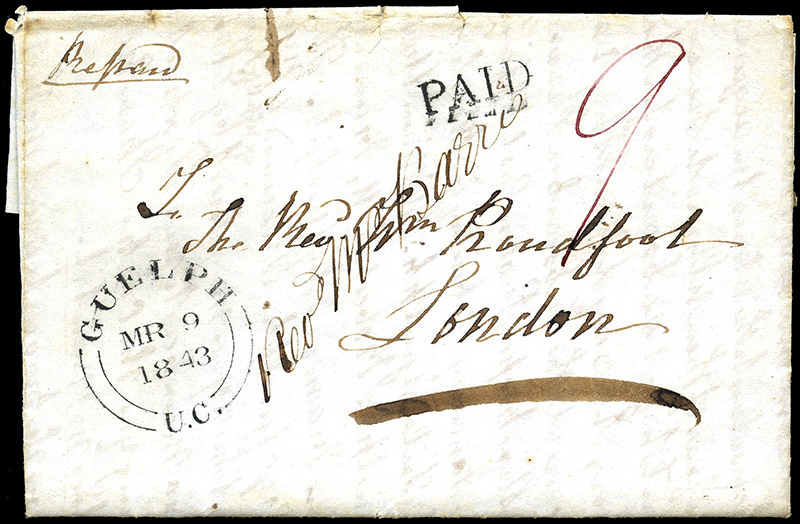 Prepaid
PAID
9
To
The Revd Wm Proudfoot
London
Revd Mr Barrie
GUELPH
MR 9
1843
U.C.